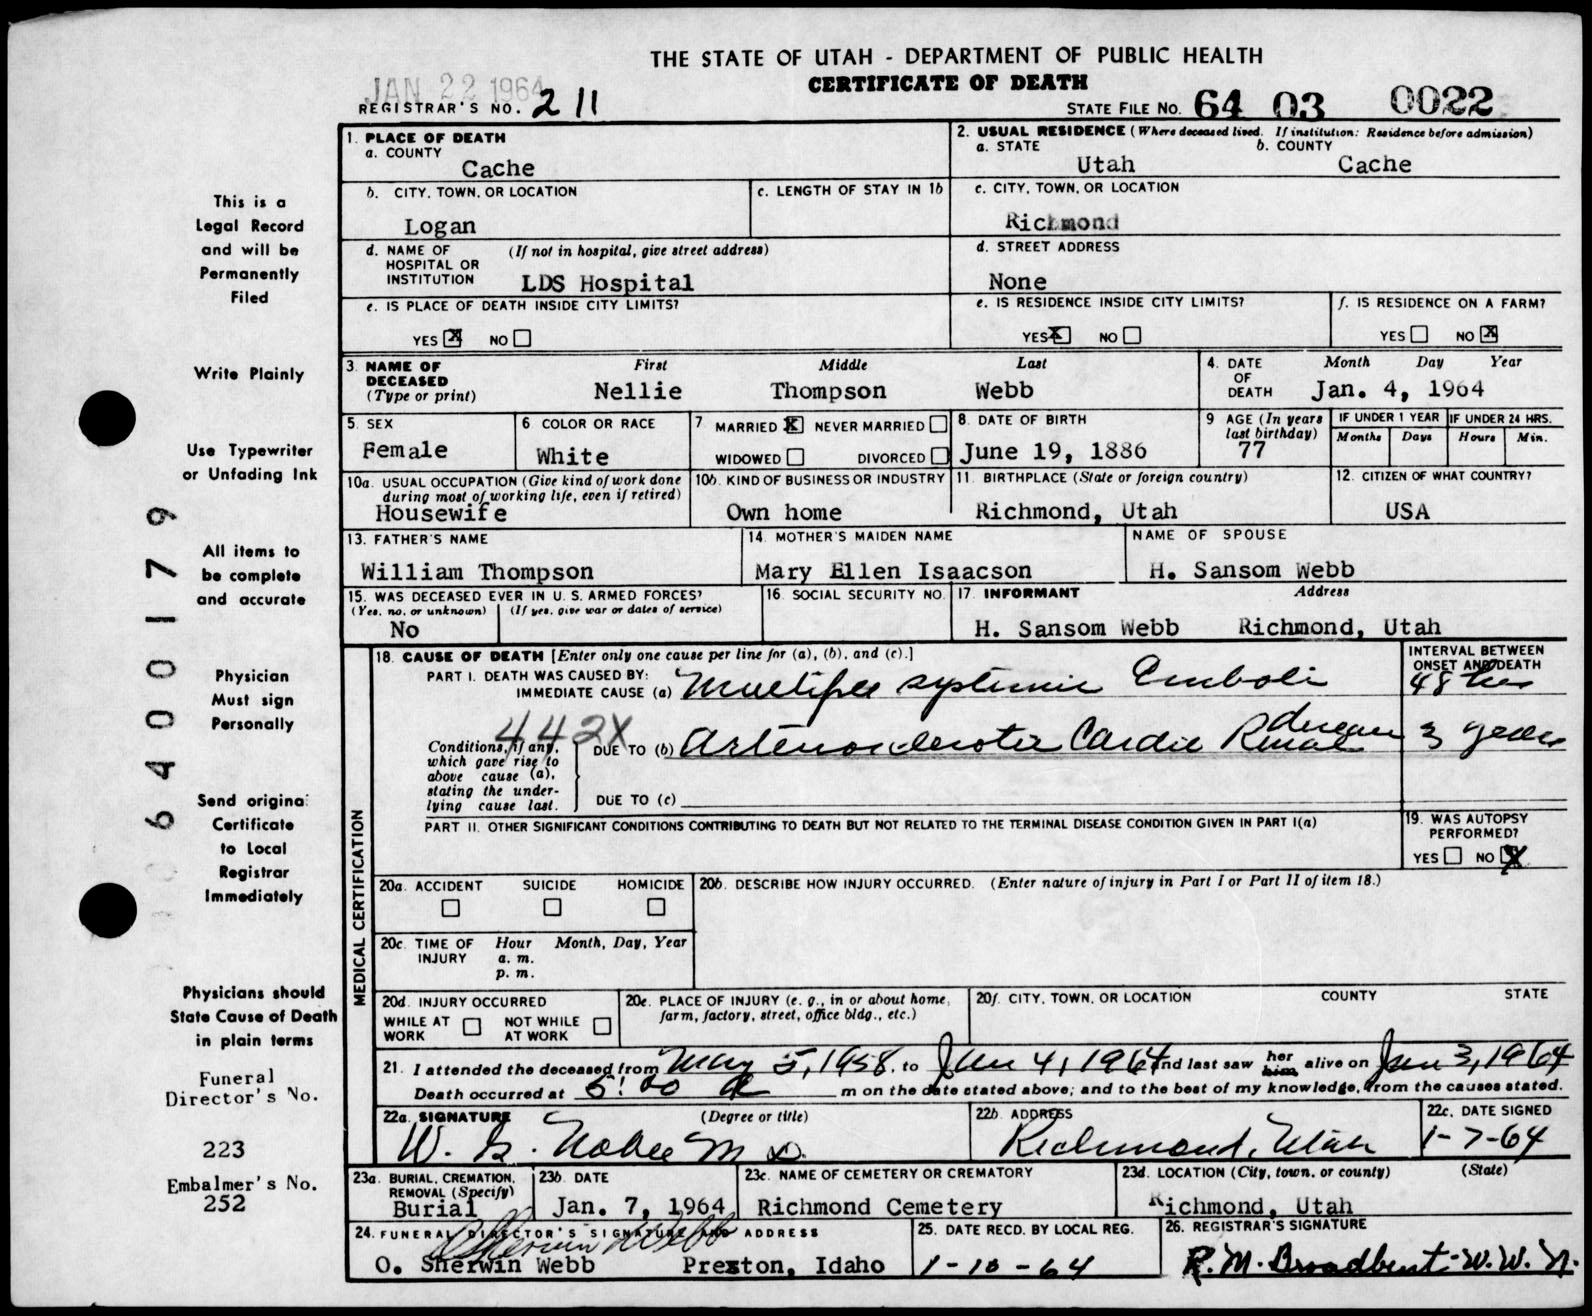 THE STATE OF UTAH - DEPARTMENT OF PUBLIC HEALTH
JAN 22 1964
CERTIFICATE OF DEATH
REGISTRAR'S NO. 211
STATE FILE NO. 64 03 0022
1. PLACE OF DEATH
a. COUNTY
Cache
2. USUAL RESIDENCE (Where deceased lived. If institution: Residence before admission)
a. STATE b. COUNTY
Utah Cache
b. CITY, TOWN, OR LOCATION
Logan
c. LENGTH OF STAY IN 1b
c. CITY, TOWN, OR LOCATION
Richmond
d. NAME OF (If not in hospital, give street address)
HOSPITAL OR
INSTITUTION LDS Hospital
d. STREET ADDRESS
None
e. IS PLACE OF DEATH INSIDE CITY LIMITS?
YES X NO
e. IS RESIDENCE INSIDE CITY LIMITS?
YES X NO
f. IS RESIDENCE ON A FARM?
YES NO X
3. NAME OF DECEASED (Type or print)
First Middle Last
Nellie Thompson Webb
4. DATE OF DEATH
Month Day Year
Jan. 4, 1964
5. SEX
Female
6 COLOR OR RACE
White
7 MARRIED X NEVER MARRIED
WIDOWED DIVORCED
8. DATE OF BIRTH
June 19, 1886
9 AGE (In years last birthday)
77
IF UNDER 1 YEAR IF UNDER 24 HRS.
Months Days Hours Min.
10a. USUAL OCCUPATION (Give kind of work done
during most of working life, even if retired)
Housewife
10b. KIND OF BUSINESS OR INDUSTRY
Own home
11. BIRTHPLACE (State or foreign country)
Richmond, Utah
12. CITIZEN OF WHAT COUNTRY?
USA
13. FATHER'S NAME
William Thompson
14. MOTHER'S MAIDEN NAME
Mary Ellen Isaacson
NAME OF SPOUSE
H. Sansom Webb
15. WAS DECEASED EVER IN U. S. ARMED FORCES?
(Yes, no, or unknown) (If yes, give war or dates of service)
No
16. SOCIAL SECURITY NO.
17. INFORMANT Address
H. Sansom Webb Richmond, Utah
MEDICAL CERTIFICATION
18. CAUSE OF DEATH [Enter only one cause per line for (a), (b), and (c).]
INTERVAL BETWEEN
ONSET AND DEATH
PART I. DEATH WAS CAUSED BY:
IMMEDIATE CAUSE (a) Multiple systemic Emboli 48 hrs
442X
Conditions, if any,
which gave rise to
above cause (a),
stating the under-
lying cause last.
DUE TO (b) Arteriosclerotic Cardio Renal disease 3 years
DUE TO (c)
PART II. OTHER SIGNIFICANT CONDITIONS CONTRIBUTING TO DEATH BUT NOT RELATED TO THE TERMINAL DISEASE CONDITION GIVEN IN PART I(a)
19. WAS AUTOPSY
PERFORMED?
YES NO X
20a. ACCIDENT SUICIDE HOMICIDE
20b. DESCRIBE HOW INJURY OCCURRED. (Enter nature of injury in Part I or Part II of item 18.)
20c. TIME OF INJURY Hour Month, Day, Year
a. m.
p. m.
20d. INJURY OCCURRED
WHILE AT WORK NOT WHILE AT WORK
20e. PLACE OF INJURY (e. g., in or about home,
farm, factory, street, office bldg., etc.)
20f. CITY, TOWN, OR LOCATION COUNTY STATE
21. I attended the deceased from May 5, 1958, to Jan 4, 1964 and last saw her him alive on Jan 3, 1964
Death occurred at 5:00 a m on the date stated above; and to the best of my knowledge, from the causes stated.
22a. SIGNATURE (Degree or title)
W. G. Noble M D.
22b. ADDRESS
Richmond, Utah
22c. DATE SIGNED
1-7-64
23a. BURIAL, CREMATION,
REMOVAL (Specify)
Burial
23b. DATE
Jan. 7, 1964
23c. NAME OF CEMETERY OR CREMATORY
Richmond Cemetery
23d. LOCATION (City, town, or county) (State)
Richmond, Utah
24. FUNERAL DIRECTOR'S SIGNATURE AND ADDRESS
O Sherwin Webb
O. Sherwin Webb Preston, Idaho
25. DATE RECD. BY LOCAL REG.
1-10-64
26. REGISTRAR'S SIGNATURE
R. M. Broadbent-W.W.N.
This is a
Legal Record
and will be
Permanently
Filed
Write Plainly
Use Typewriter
or Unfading Ink
All items to
be complete
and accurate
Physician
Must sign
Personally
Send original
Certificate
to Local
Registrar
Immediately
Physicians should
State Cause of Death
in plain terms
Funeral
Director's No.
223
Embalmer's No.
252
6400179